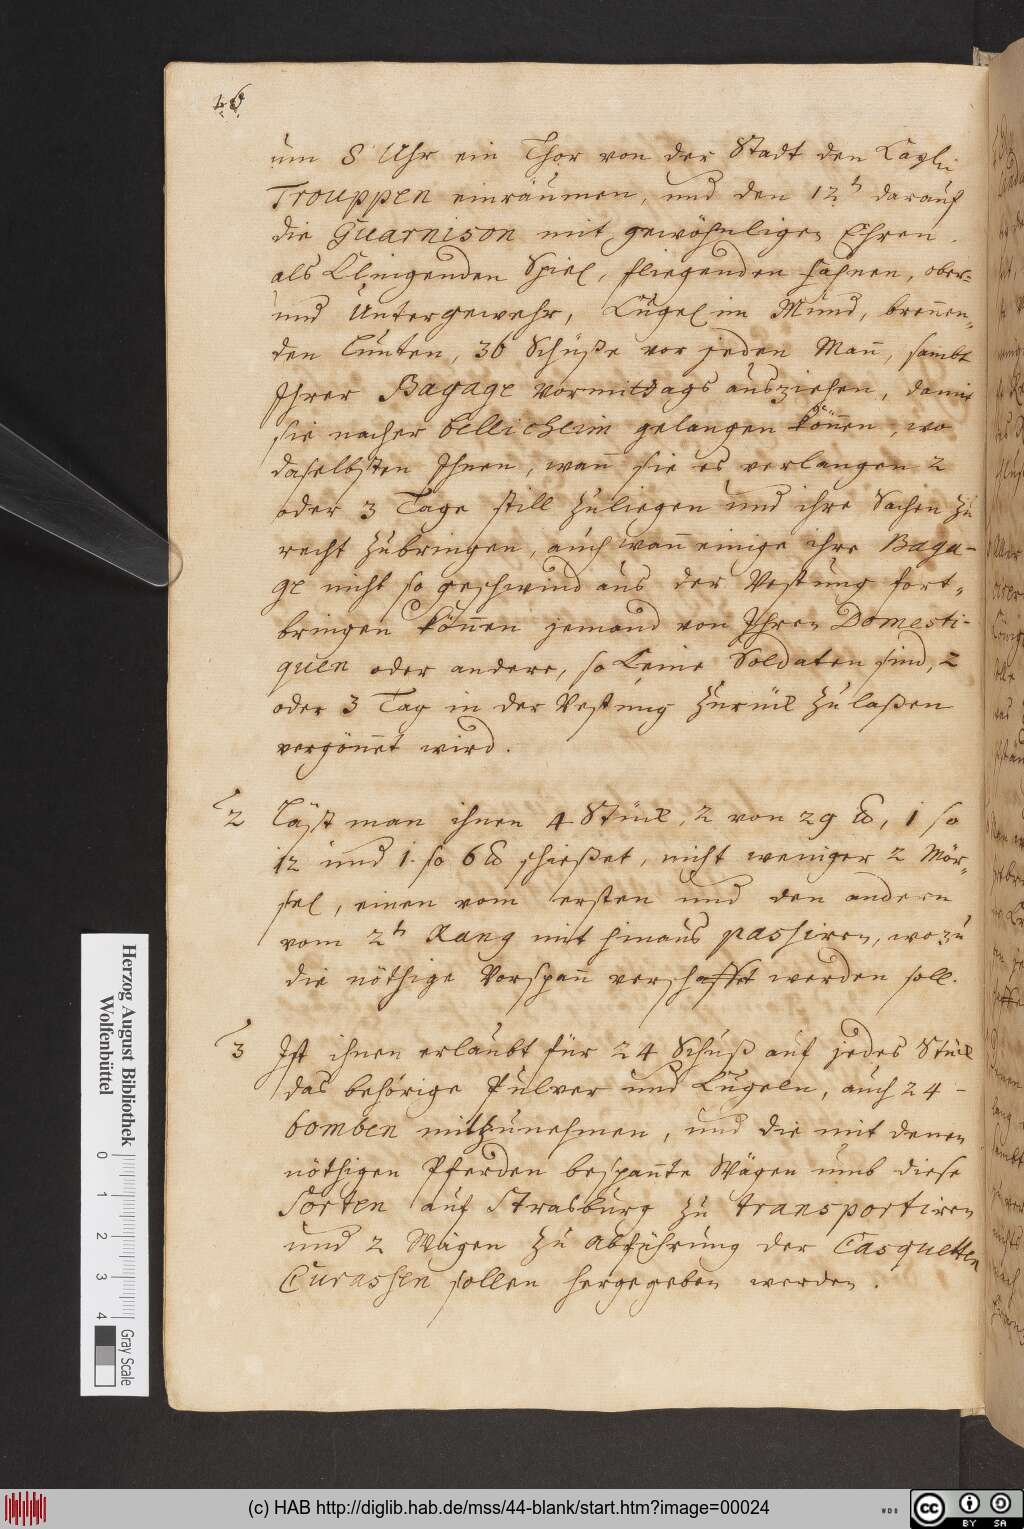 46.
um 8 Uhr ein Thor von der Stadt den Kayßl:
Trouppen einräumen, und den 12t darauf
die Guarnison mit gewöhnligen Ehren.
als Klingenden Spiel, fliegenden Fahnen, ober-
und Untergewehr, Kugel im Mund, brennen-
den Lunten, 30 Schüße vor jeden Mañ, sambt
Ihrer Bagage Vormittags ausziehen, damit
sie nacher Bellicheim gelangen köñen, wo
daselbsten Ihnen, wañ sie es verlangen 2
oder 3 Tage still zuliegen und ihre Sachen zu
recht zubringen, auch wañ einige ihre Baga-
ge nicht so geschwind aus der Vestung fort-
bringen köñen jemand von Ihren Domesti-
quen oder andere, so keine Soldaten sind, 2
oder 3 Tag in der Vestung zurück zulaßen
vergöñet wird.
2 Läst man ihnen 4 Stück, 2 von 29 ℔, 1 so
12 und 1. so 6 ℔ schießet, nicht weniger 2 Mör-
sel, einen vom ersten und den andern
vom 2t Rang mit hinaus passiren, wozu
die nöthige Vorspañ verschaffet werden soll.
3 Ist ihnen erlaubt für 24 Schuß auf jedes Stück
das behörige Pulver und Kugeln, auch 24 -
bomben mitzunehmen, und die mit denen
nöthigen Pferden bespañte Wägen umb diese
Sorten auf Strasburg zu transportiren
und 2 Wägen zu Abführung der Casquetten
Curassen sollen hergegeben werden.
Herzog August Bibliothek
Wolfenbüttel
0 1 2 3 4
Gray Scale
(c) HAB http://diglib.hab.de/mss/44-blank/start.htm?image=00024
WDB
cc BY SA